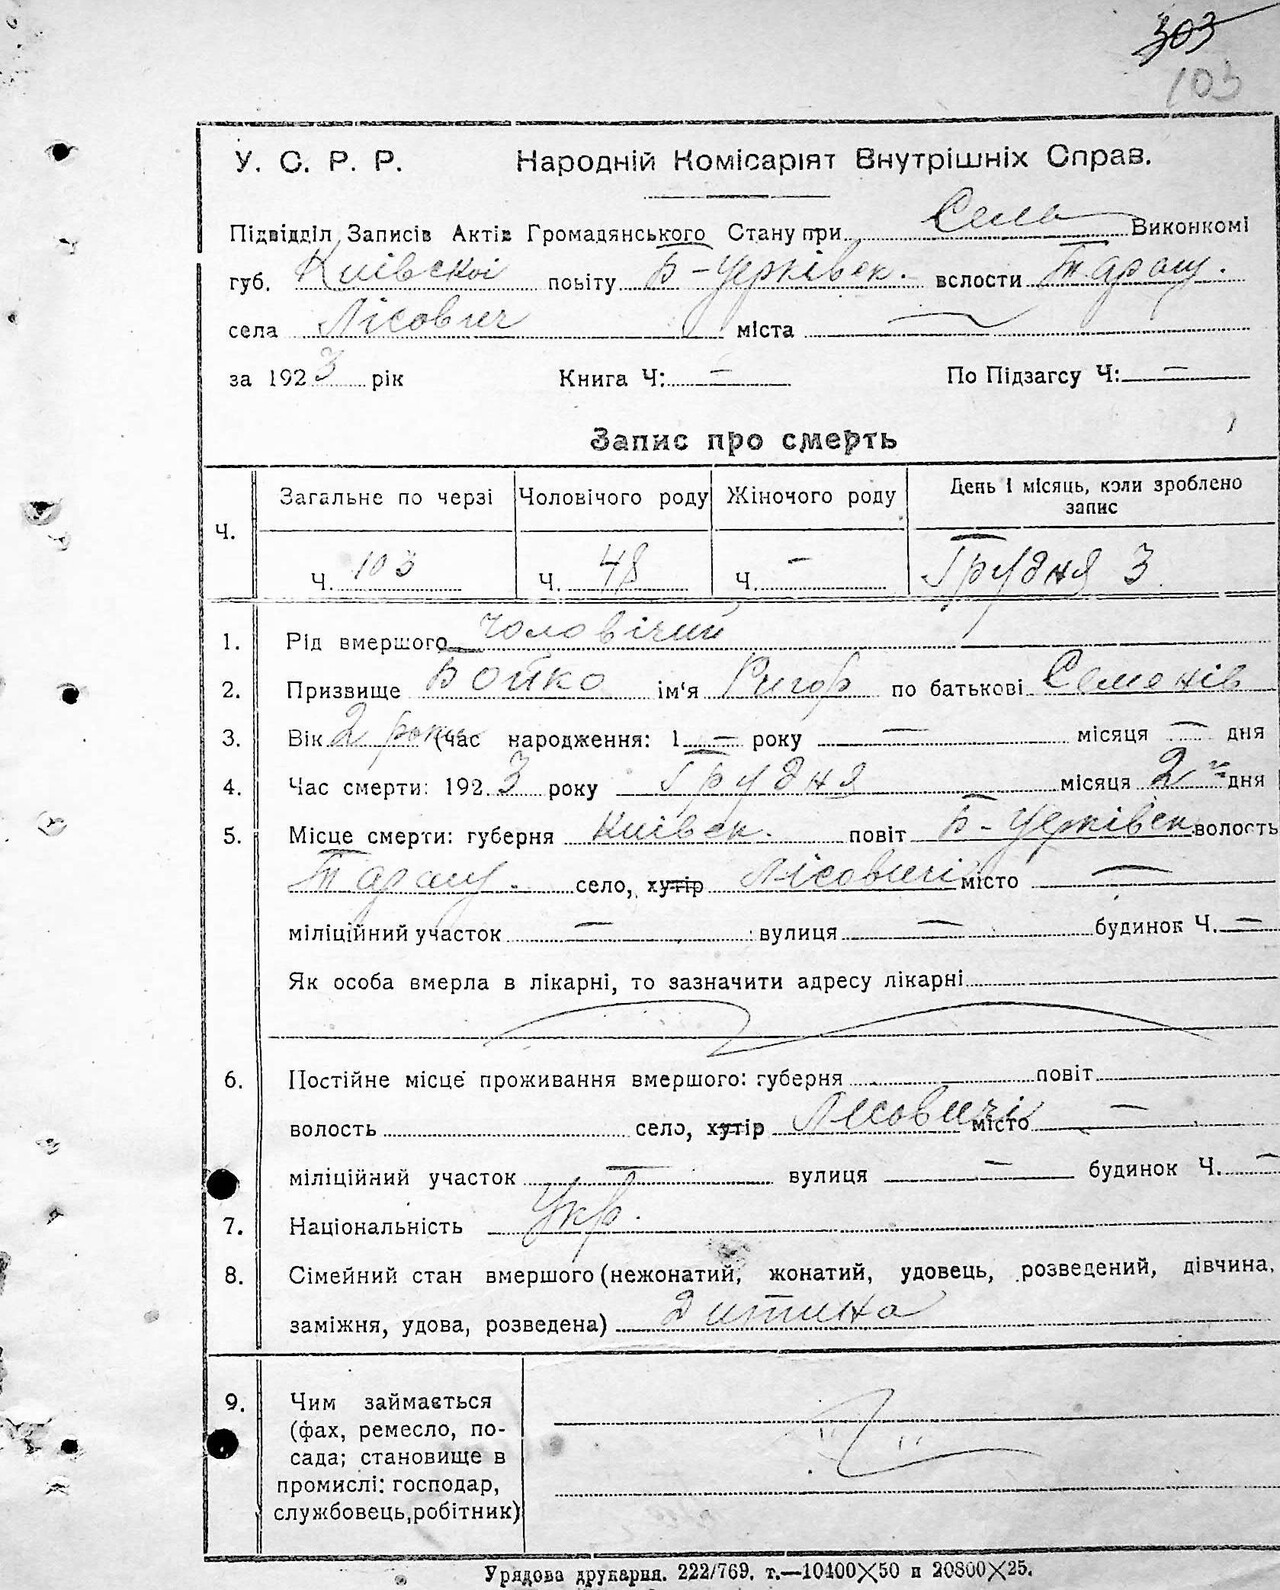 303
103
У. С. Р. Р. Народній Комісаріят Внутрішніх Справ.
Підвідділ Записів Актів Громадянського Стану при Сель Виконкомі
губ. Київскої повіту Б-Церківск. волости Таращ.
села Лісович міста —
за 1923 рік Книга Ч: — По Підзагсу Ч: —
Запис про смерть
Ч. Загальне по черзі Чоловічого роду Жіночого роду День і місяць, коли зроблено запис
Ч. 103 Ч. 48 Ч. — Грудня 3
1. Рід вмершого Чоловічий
2. Призвище Бойко ім'я Ригор по батькові Семенів
3. Вік 2 роки (час народження: 1 — року — місяця — дня
4. Час смерти: 1923 року Грудня місяця 2го дня
5. Місце смерти: губерня Київск. повіт Б-Церківск. волость
Таращ. село, хутір Лісовичі місто —
міліційний участок — вулиця — будинок Ч. —
Як особа вмерла в лікарні, то зазначити адресу лікарні
6. Постійне місце проживання вмершого: губерня повіт
волость село, хутір Лісовичі місто —
міліційний участок — вулиця — будинок Ч. —
7. Національність Укр.
8. Сімейний стан вмершого (нежонатий, жонатий, удовець, розведений, дівчина,
заміжня, удова, розведена) дитина
9. Чим займається
(фах, ремесло, по-
сада; становище в
промислі: господар,
службовець, робітник)
Урядова друкарня. 222/769. т.—10400X50 и 20800X25.